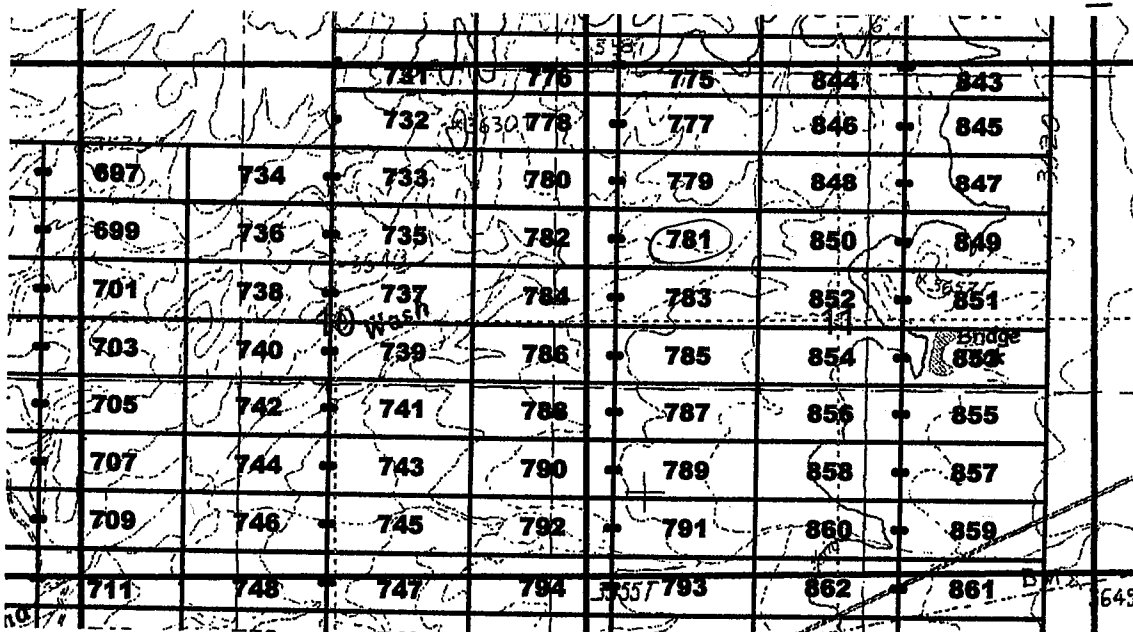 731 776 775 844 843
732 3630 778 777 846 845
697 734 733 780 779 848 847
699 736 735 782 781 850 849
701 738 737 784 783 852 851
10 Wash 11
703 740 739 786 785 854 Bridge 853
705 742 741 788 787 856 855
707 744 743 790 789 858 857
709 746 745 792 791 860 859
711 748 747 794 793 862 861